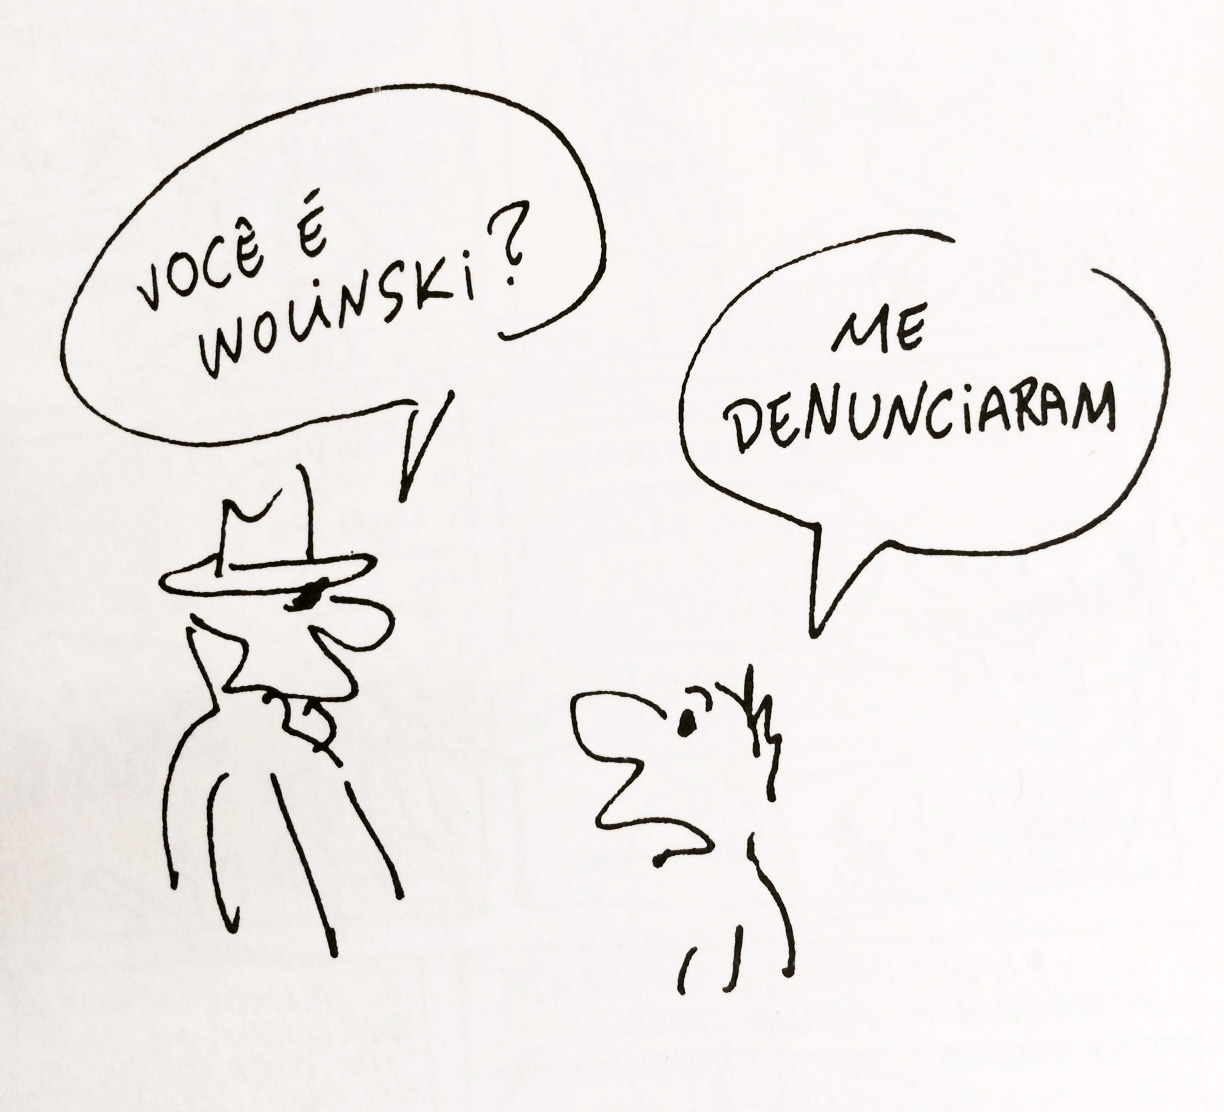 VOCÊ É
WOLiNSKi?
ME
DENUNCiARAM